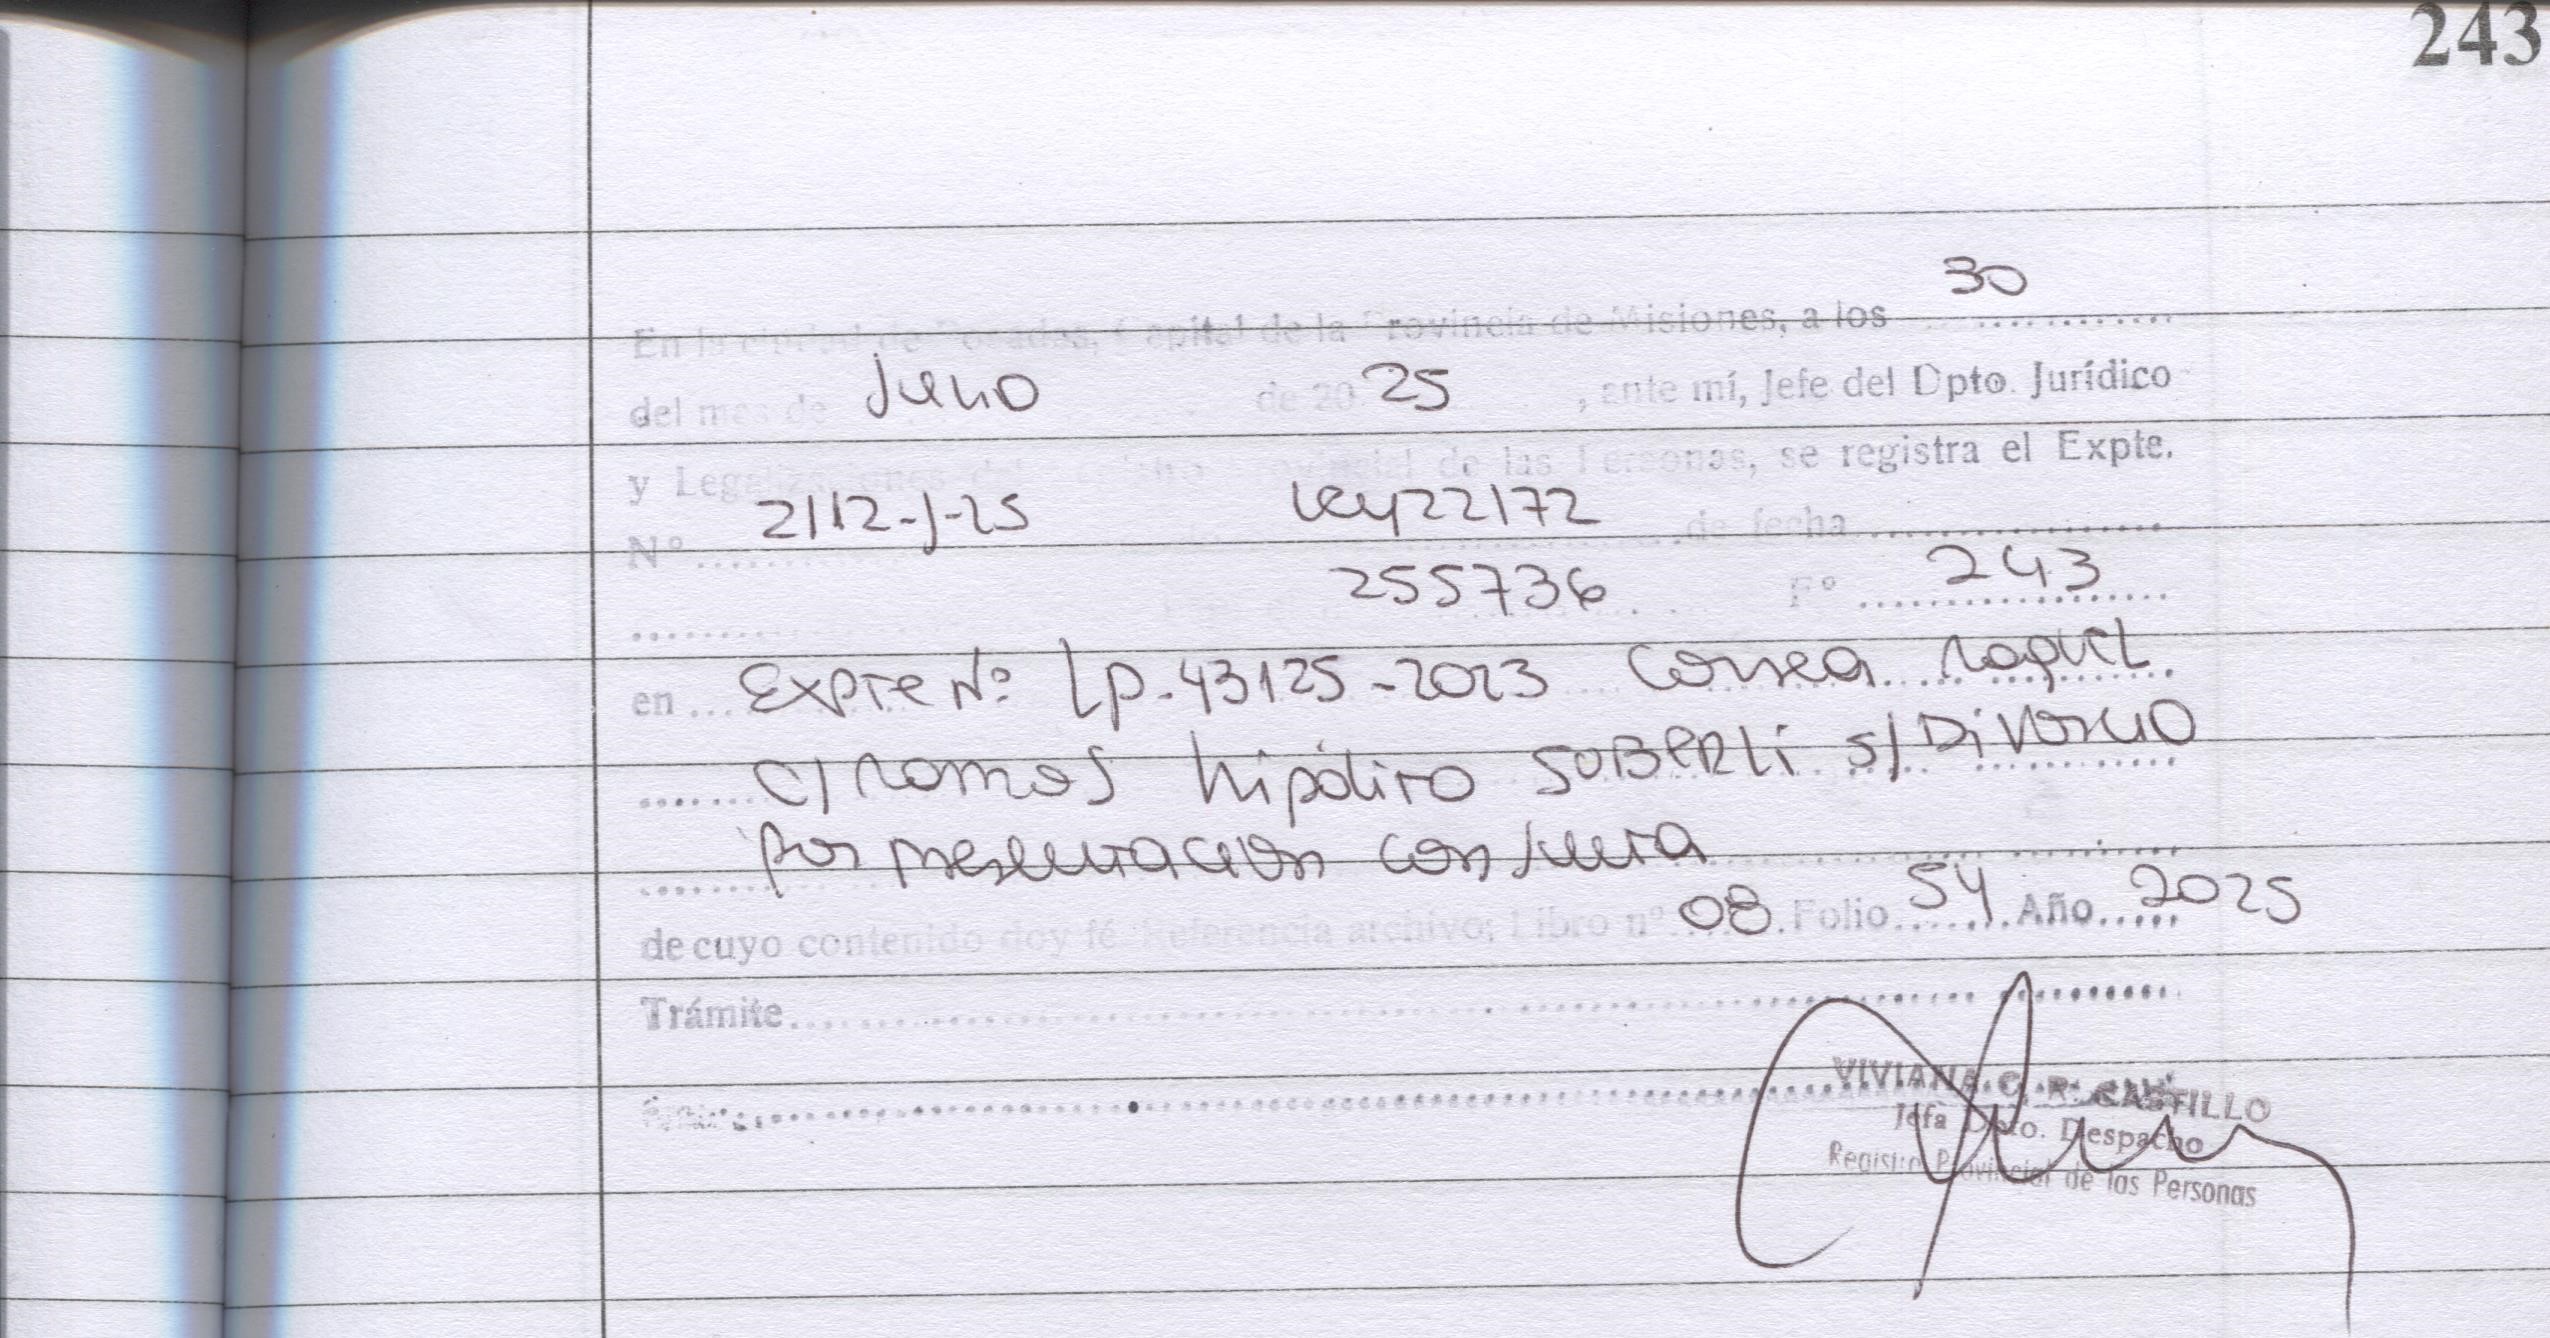 243
30
En la ciudad de Posadas, Capital de la Provincia de Misiones, a los ..............
del mes de Julio de 20 25, ante mí, Jefe del Dpto. Jurídico
y Legalizaciones del Provincial de las Personas, se registra el Expte.
N° 2112-J-25 Ley 22172 de fecha ..............
255736 F° 243
en Expte N° LP-43125-2023 Correa Raquel
C/ Ramos Hipólito SUBERLI S/ Divorcio
por presentación conjunta
de cuyo contenido doy fé. Referencia archivo; Libro n° 08 Folio 54 Año 2025
Trámite
VIVIANA C. R. CASTILLO
Jefa Dpto. Despacho
Registro Provincial de las Personas